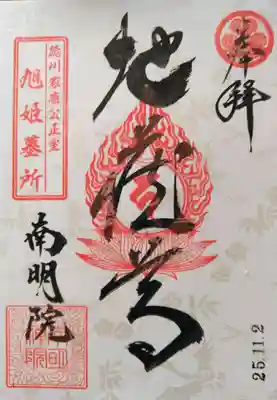 奉拝
地蔵尊
徳川家康公正室
旭姫墓所
南明院
25.11.2